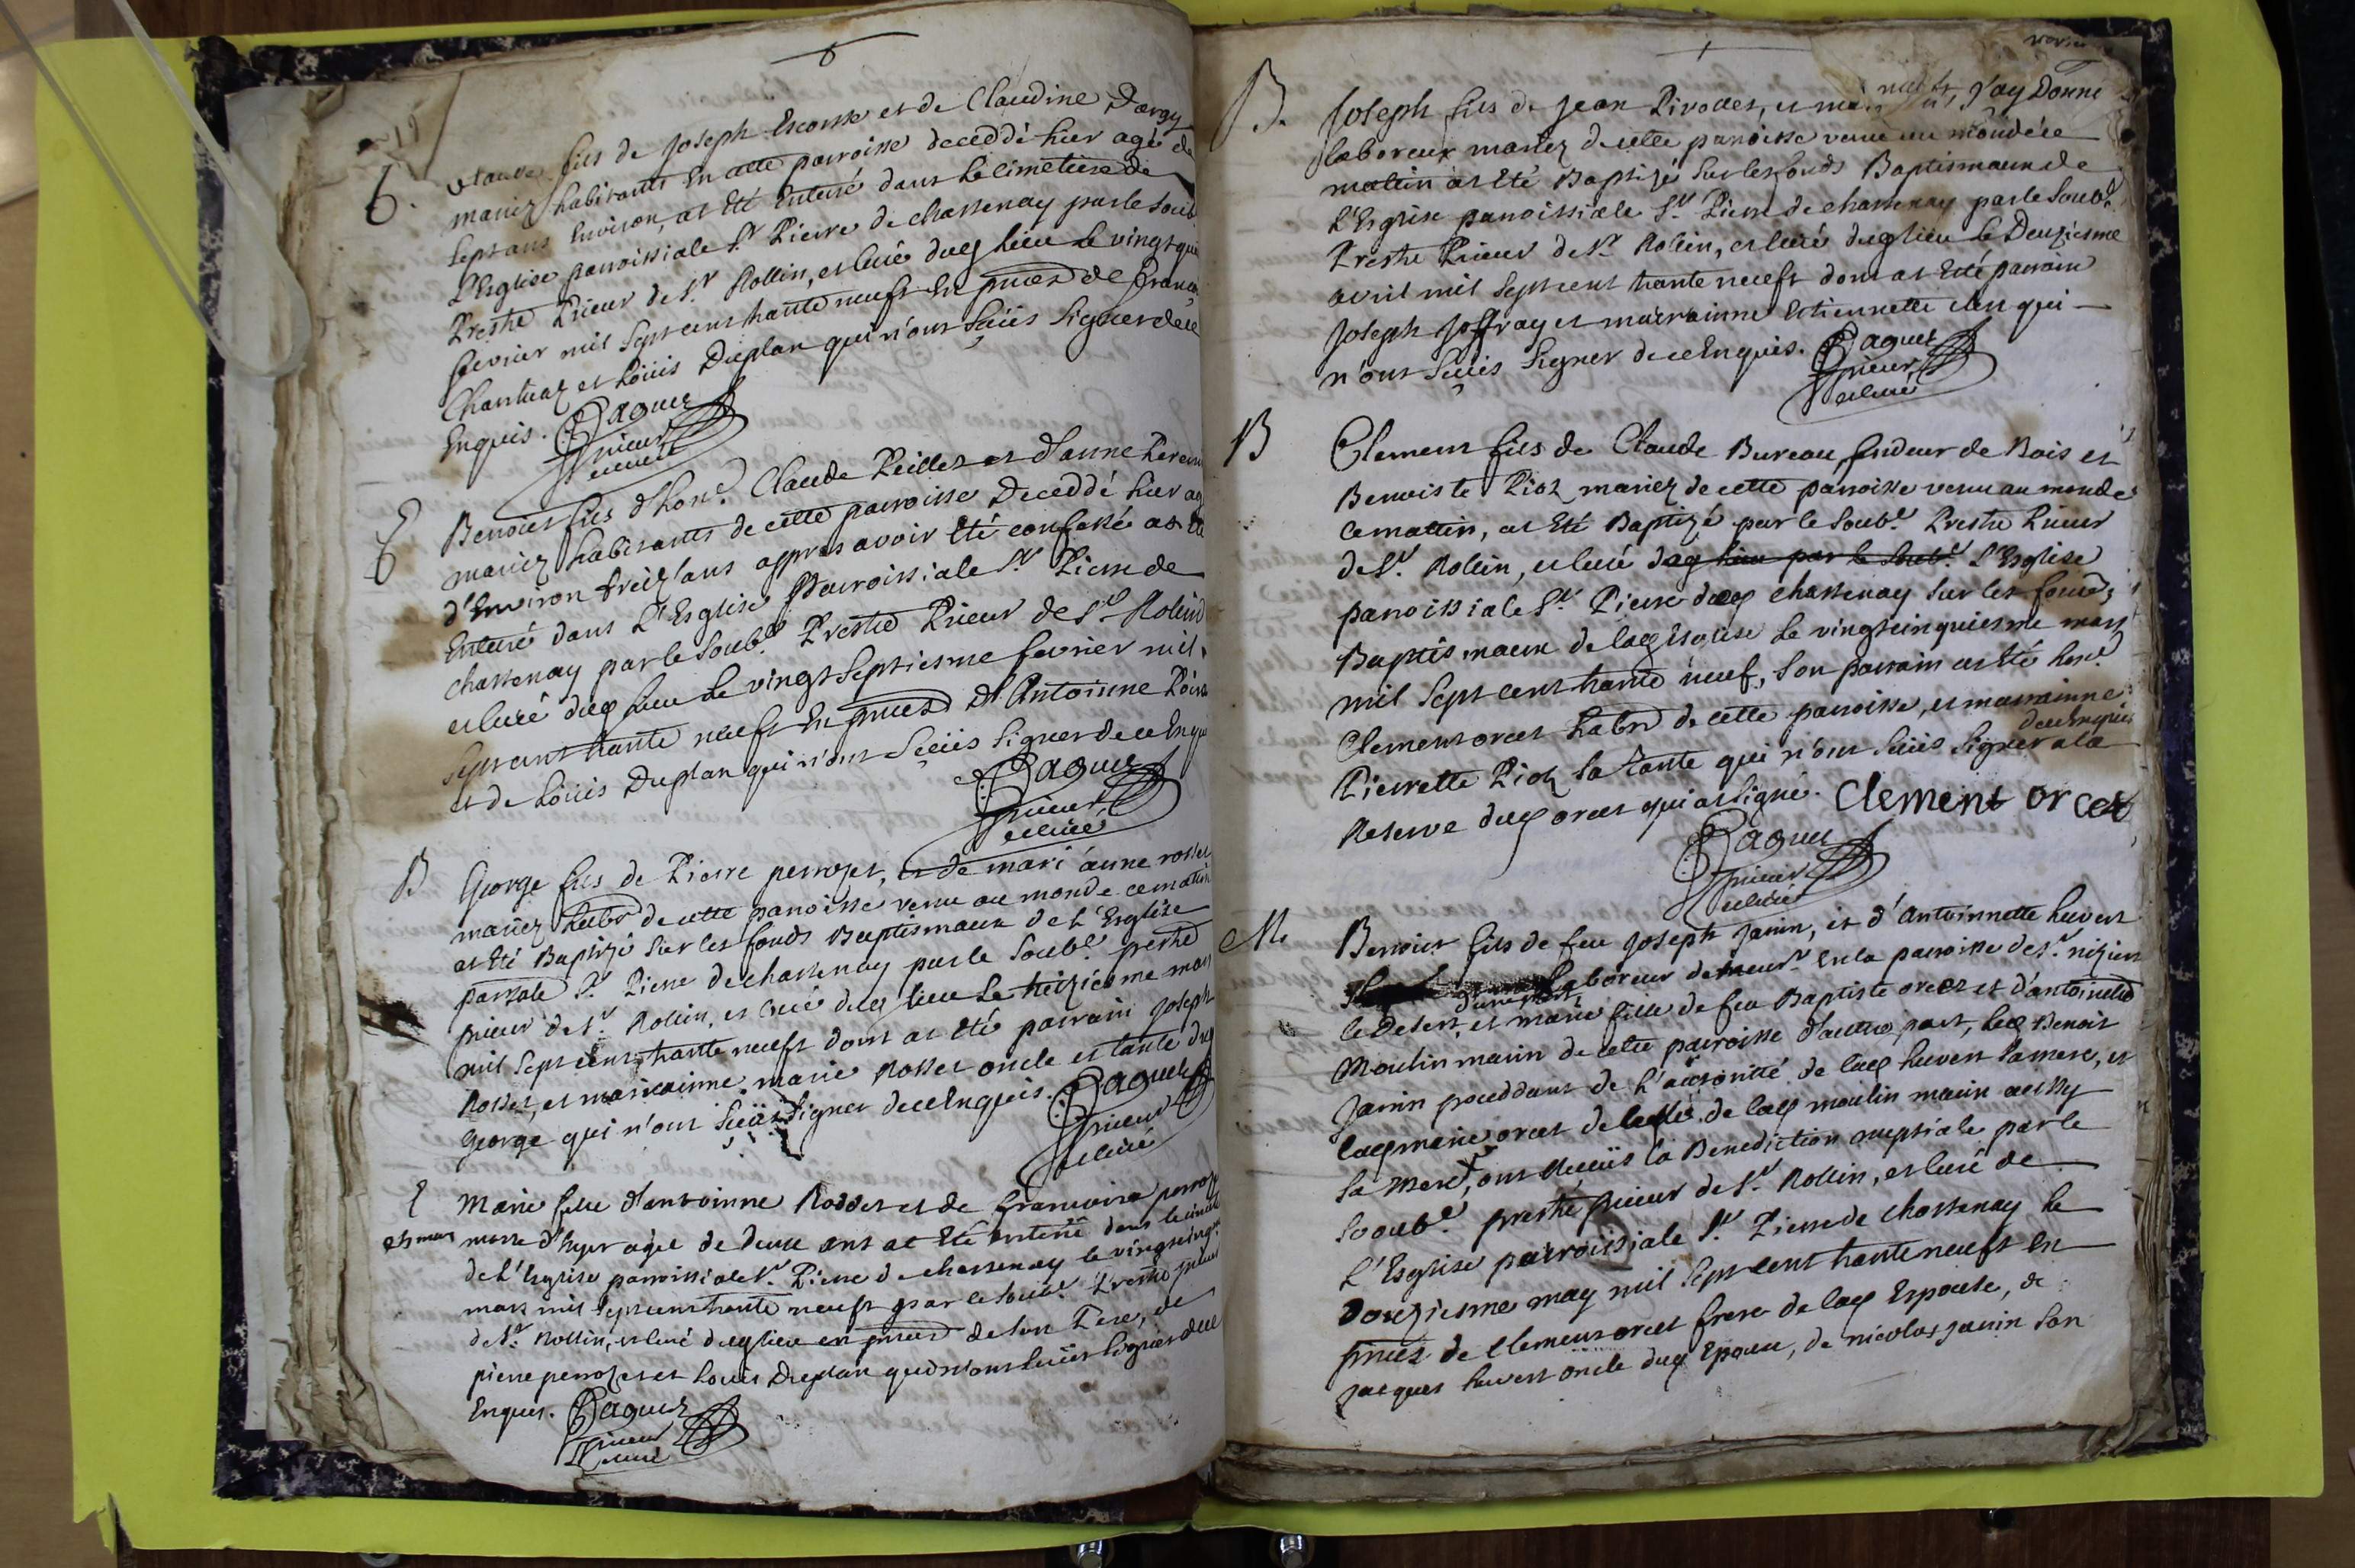 6
E. Claude fils de Joseph Escosse et de Claudine Dargy
mariez habitants En cette parroisse deceddé hier agé de
Sept ans Environ, at Eté Enterré dans le Cimetiere de
L'Esglise parroissiale St. Pierre de chassenay par le Soub
Prestre Prieur de St. Rollin, et Curé dud lieu Le vingt
fevrier mil Sept cent trante neuft En pnces de
et Loüis Duplan qui n'ont Sçüs Signer de ce
Enquis. Paquez
prieur
et Curé
E Benoist fils d'honn. Claude Peillet et d'anne
mariez habitants de cette parroisse Deceddé hier
d'Environ treiz ans appres avoir Eté confessé at
Enterré dans L'Esglise Parroissiale St. Pierre de
chassenay par le Soub. Prestre Prieur de St. Rolin
et curé dud lieu Le vingt Septiesme fevrier mil
Sept cent trante neuft En pnces D'Antoinne
et de Loüis Duplan qui n'ont Sçüs Signer de ce Enquis
Paquez
prieur
et Curé
B George fils de Pierre perrozet, et de mari anne rosset
mariez habts de cette parroisse venu au monde ce matin
at Eté Baptizé Sur les fonds Baptismaux de L'Esglise
parrale St. Pierre de chassenay par le Soub. prestre
prieur de St. Rollin, et Curé dud lieu Le treiziesme mars
mil Sept cent trante neuft dont at Eté parrain Joseph
Rosset, et marrainne marie Rosset oncle et tante dud
George qui n'ont Sçüs Signer de ce Enquis. Paquez
prieur
et Curé
E Marie fille d'antoinne Rosset et de francoise
25 mars morte d'hyer agée de deux ans at Eté Enterré dans le
de L'Esglise parroissiale St. Pierre de chassenay le vingt
mars mil Sept cent trante neuft par le Soub. Prestre prieur
de St. Rollin, et curé dud lieu en pnces de son Pere, de
pierre perrozet et Loüis Duplan qui n'ont Sçüs Signer de ce
Enquis. Paquez
prieur
et curé
B. Joseph fils de Jean Pivodet, et J'ay Donné
laboreur mariez de cette parroisse venu au monde ce
matin at Eté Baptizé Sur les fonds Baptismaux de
L'Esglise parroissiale St. Pierre de chassenay par le Soub.
Prestre Prieur de St. Rolin, et Curé dud lieu Le Deuziesme
avril mil Sept cent trante neuft dont at Eté parrain
Joseph Joffray et marrainne Estiennette qui
n'ont Sçüs Signer de ce Enquis. Paquez
prieur
et Curé
B Clement fils de Claude Bureau, fendeur de Bois et
Benoiste Piot mariez de cette parroisse venu au monde
ce mattin, at Eté Baptizé par le Soub. Prestre Prieur
de St. Rollin, et Curé dud lieu par le Soub. L'Esglise
parroissiale St. Pierre dud chassenay Sur les fonds
Baptismaux de lad Esglise Le vingt cinquiesme mars
mil Sept cent trante neuf, Son parrain at Eté hon.
Clement orcet habt de cette parroisse, et marrainne
Pierrette Piot Sa tante qui n'ont Sçüs Signer a la
de ce Enquis
Reserve dud orcet qui at Signé. Clement orcet
Paquez
prieur
et curé
M. Benoist fils de feu Joseph Janin, et d'Antoinnette huvert
Laboreur demeurt En la parroisse de St. nizier
le Desert, d'une part, et marie fille de feu Baptiste orcet et d'antoinette
Moulin marin de cette parroisse d'autre part, led Benoit
Janin proceddant de L'autorité de lad huvert Sa mere, et
lad marie orcet de celle de lad moulin marin aussy
Sa mere, ont Reçüs la Benediction nuptiale par le
Soub. prestre prieur de St. Rollin, et Curé de
L'Esglise parroissiale St. Pierre de chassenay le
Douziesme may mil Sept cent trante neuft En
pnces de Clement orcet frere de lad Espouse, de
Jacques huvert oncle dud Epoux, de nicolas Janin Son